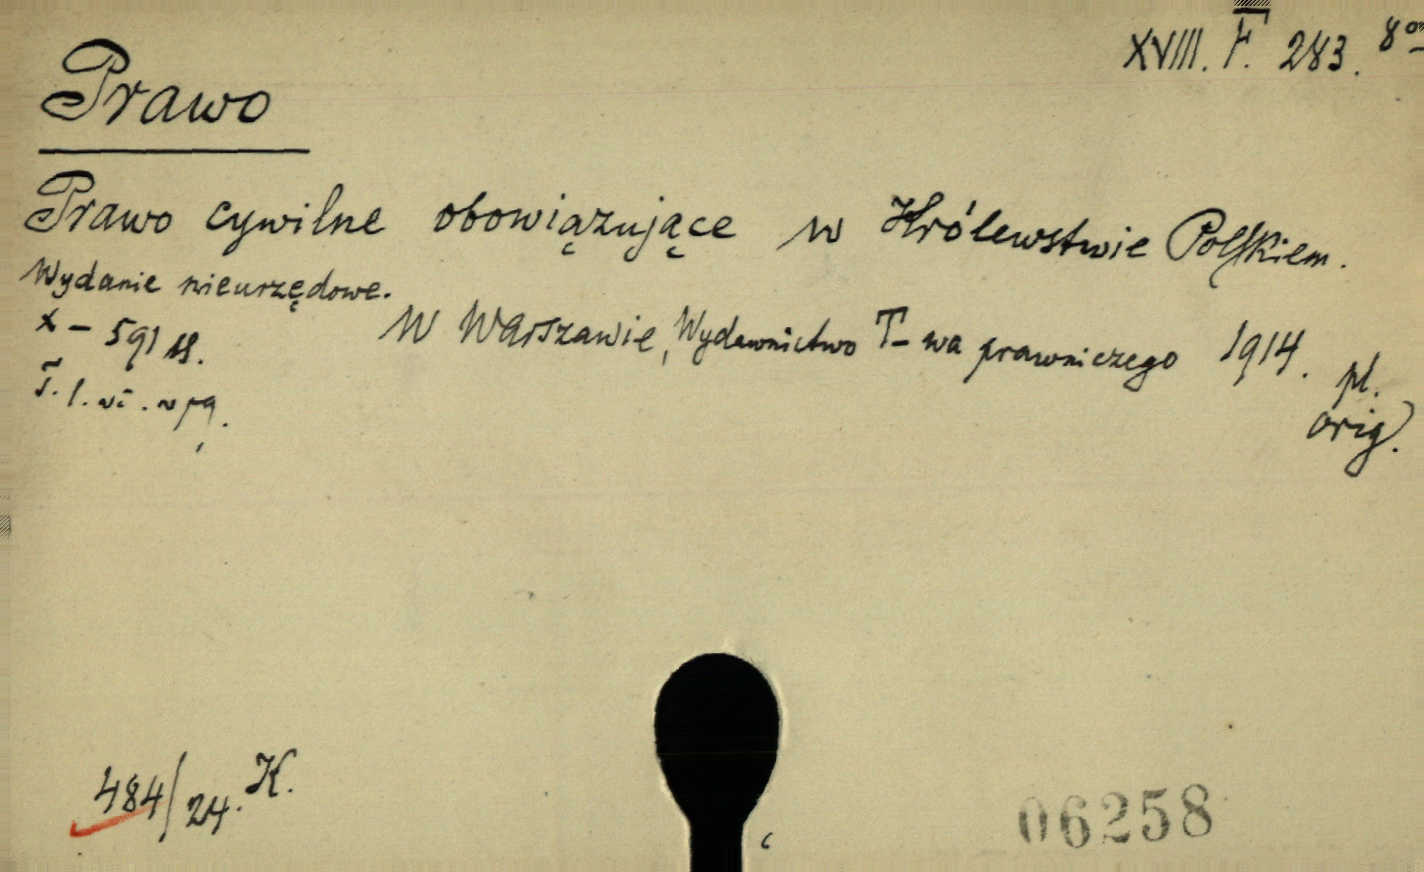 XVIII. F. 283. 8o
Prawo
Prawo cywilne obowiązujące w Królewstwie Polskiem.
Wydanie nieurzędowe.
W Warszawie, Wydawnictwo T-wa prawniczego 1914.
X – 591 str.
pl.
orig.
484/24. K.
06258